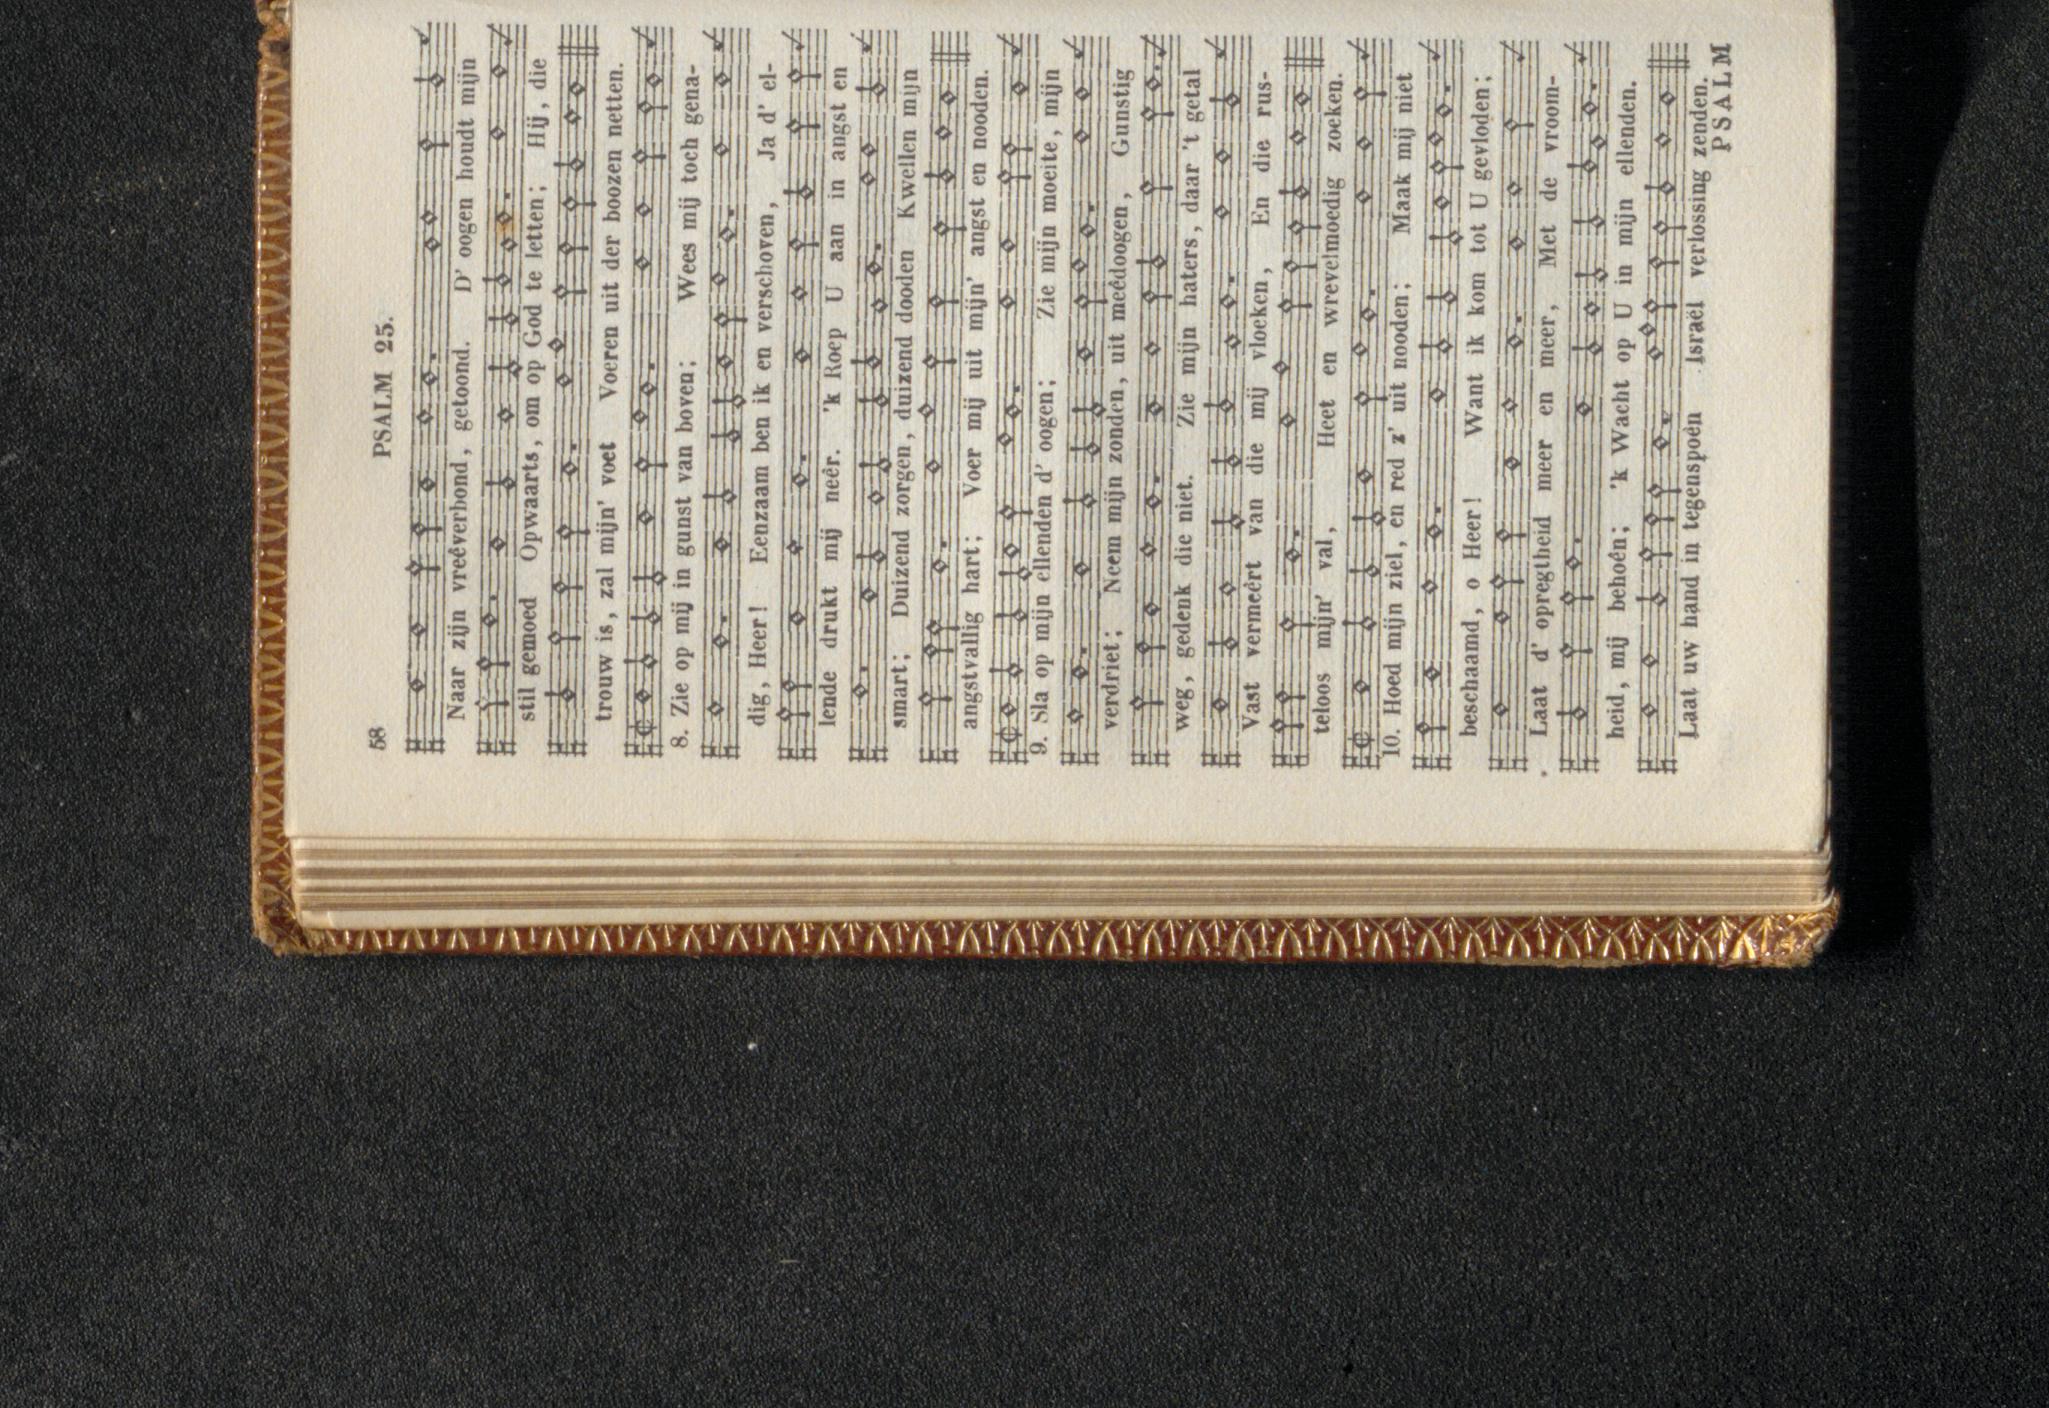 58 PSALM 25.
Naar zijn vreêverbond, getoond. D' oogen houdt mijn
stil gemoed Opwaarts, om op God te letten; Hij, die
trouw is, zal mijn' voet Voeren uit der boozen netten.
8. Zie op mij in gunst van boven; Wees mij toch gena-
dig, Heer! Eenzaam ben ik en verschoven, Ja d' el-
lende drukt mij neêr. 'k Roep U aan in angst en
smart; Duizend zorgen, duizend dooden Kwellen mijn
angstvallig hart; Voer mij uit mijn' angst en nooden.
9. Sla op mijn ellenden d' oogen; Zie mijn moeite, mijn
verdriet; Neem mijn zonden, uit meêdoogen, Gunstig
weg, gedenk die niet. Zie mijn haters, daar 't getal
Vast vermeêrt van die mij vloeken, En die rus-
teloos mijn' val, Heet en wrevelmoedig zoeken.
10. Hoed mijn ziel, en red z' uit nooden; Maak mij niet
beschaamd, o Heer! Want ik kom tot U gevloden;
Laat d' opregtheid meer en meer, Met de vroom-
heid, mij behoên; 'k Wacht op U in mijn ellenden.
Laat uw hand in tegenspoên Israël verlossing zenden.
PSALM